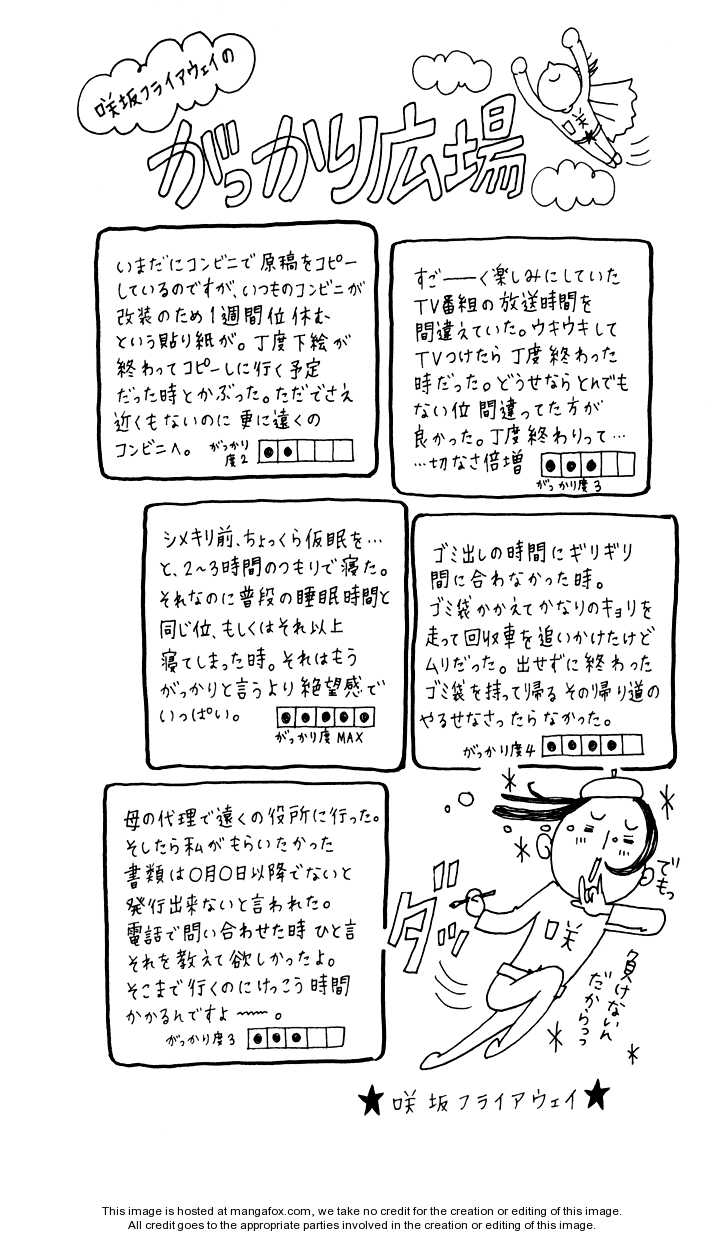 咲坂フライアウェイの
がっかり広場
咲
いまだにコンビニで原稿をコピー
しているのですが、いつものコンビニが
改装のため1週間位休む
という貼り紙が。丁度下絵が
終わってコピーしに行く予定
だった時とかぶった。ただでさえ
近くもないのに更に遠くの
コンビニへ。
がっかり
度2
すご――く楽しみにしていた
TV番組の放送時間を
間違えていた。ウキウキして
TVつけたら丁度終わった
時だった。どうせならとんでも
ない位間違ってた方が
良かった。丁度終わりって…
…切なさ倍増
がっかり度3
シメキリ前、ちょっくら仮眠を…
と、2〜3時間のつもりで寝た。
それなのに普段の睡眠時間と
同じ位、もしくはそれ以上
寝てしまった時。それはもう
がっかりと言うより絶望感で
いっぱい。
がっかり度MAX
ゴミ出しの時間にギリギリ
間に合わなかった時。
ゴミ袋かかえてかなりのキョリを
走って回収車を追いかけたけど
ムリだった。出せずに終わった
ゴミ袋を持って帰るその帰り道の
やるせなさったらなかった。
がっかり度4
母の代理で遠くの役所に行った。
そしたら私がもらいたかった
書類は〇月〇日以降でないと
発行出来ないと言われた。
電話で問い合わせた時ひと言
それを教えて欲しかったよ。
そこまで行くのにけっこう時間
かかるんですよ〜〜。
がっかり度3
ダッ
咲
でもっ
負けないん
だからっっ
★咲坂フライアウェイ★
This image is hosted at mangafox.com, we take no credit for the creation or editing of this image.
All credit goes to the appropriate parties involved in the creation or editing of this image.